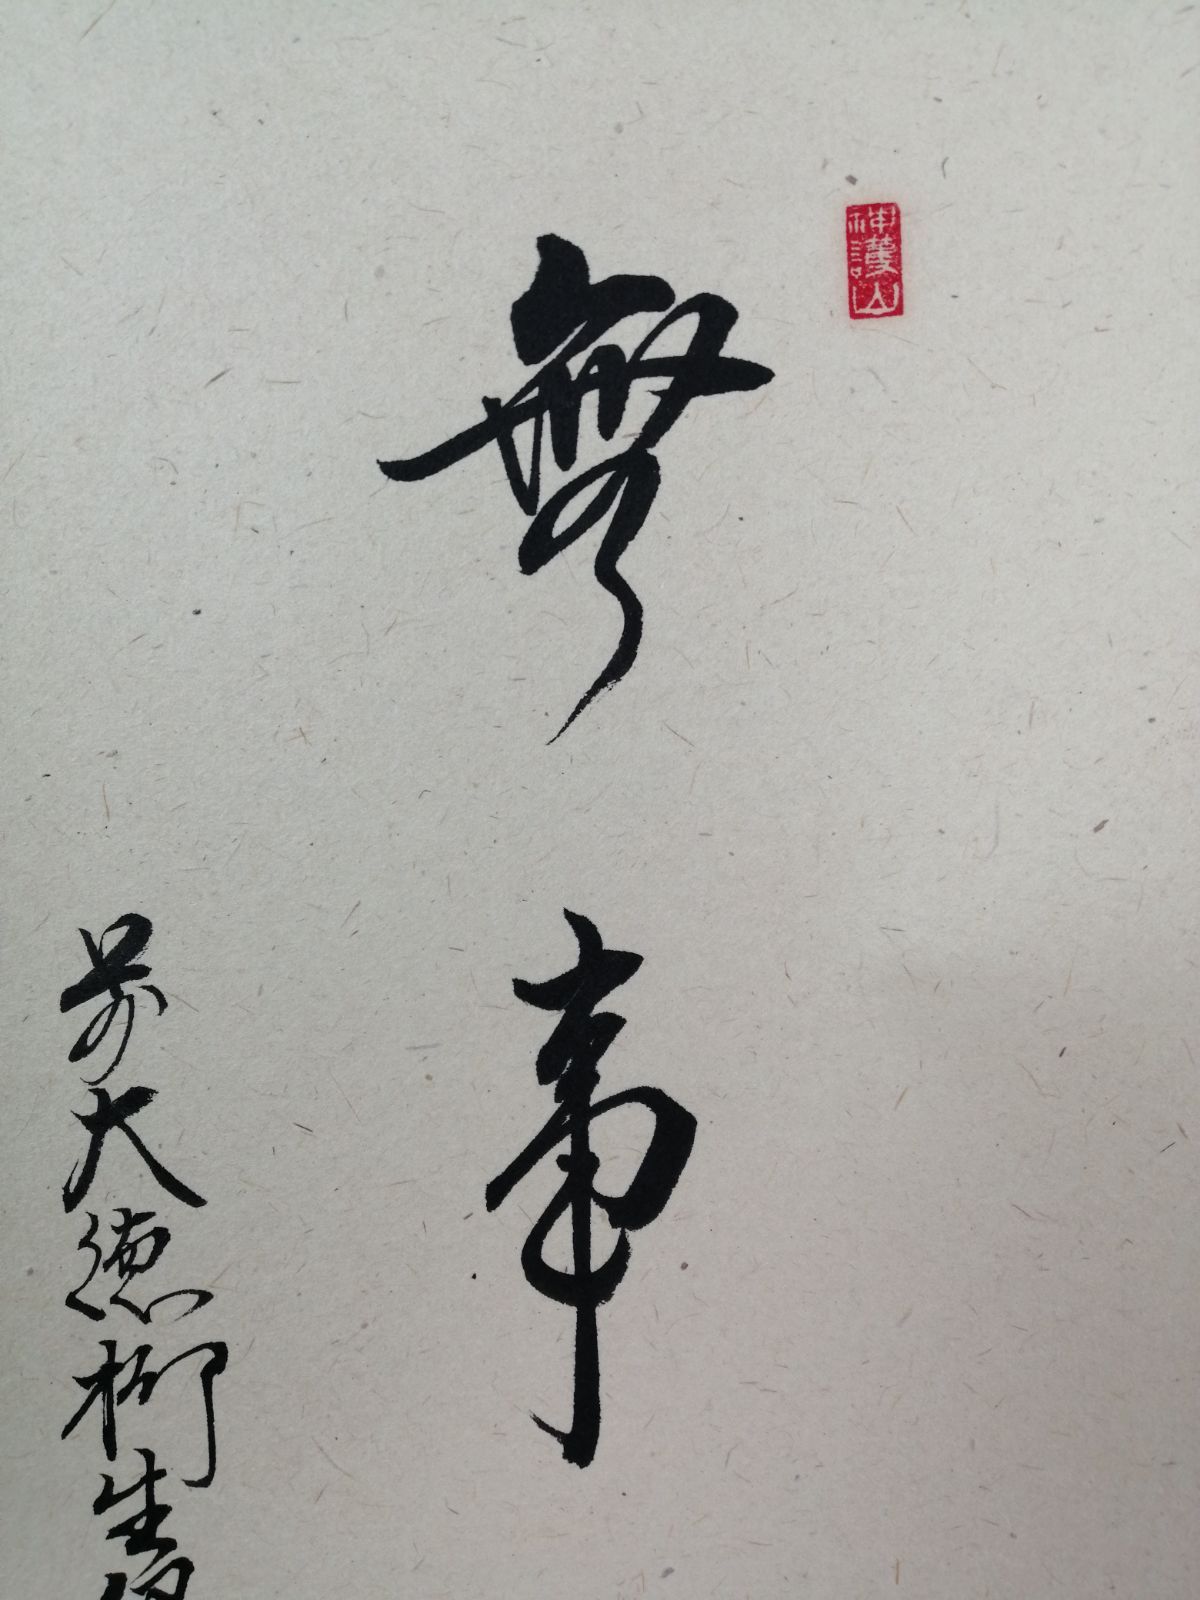 神護山
無事
前大徳柳生